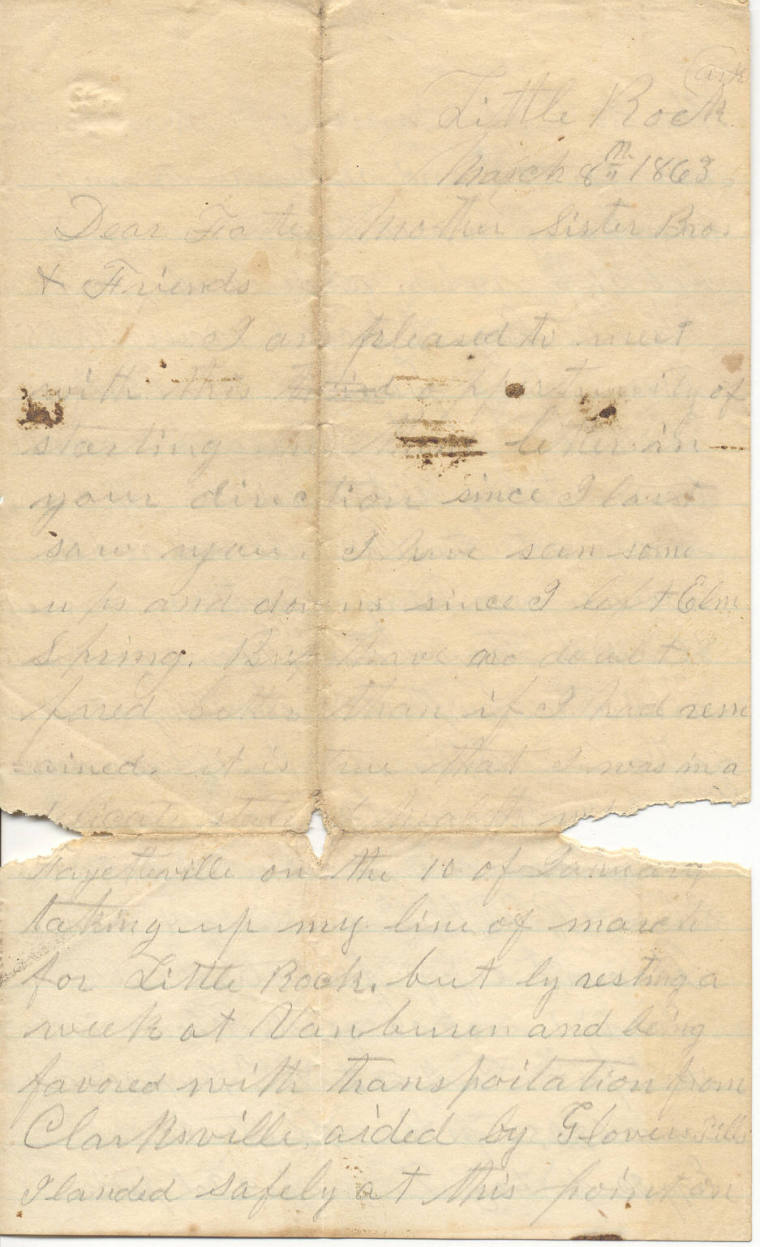 Ark
Little Rock
March 8th 1863
Dear Father Mother Sister Bro.
& Friends
I am pleased to meet
with this opportunity of
starting letter in
your direction since I last
saw you. I have seen some
ups and downs since I left Elm
Spring. But have no doubt
fared better than if I had rem
ained. it is true that I was in a
delicate state of health
Fayetteville on the 10 of January
taking up my line of march
for Little Rock. but by resting a
week at Vanburen and being
favored with transpoitation from
Clarksville, aided by Glovers Pills
I landed safely at this point on